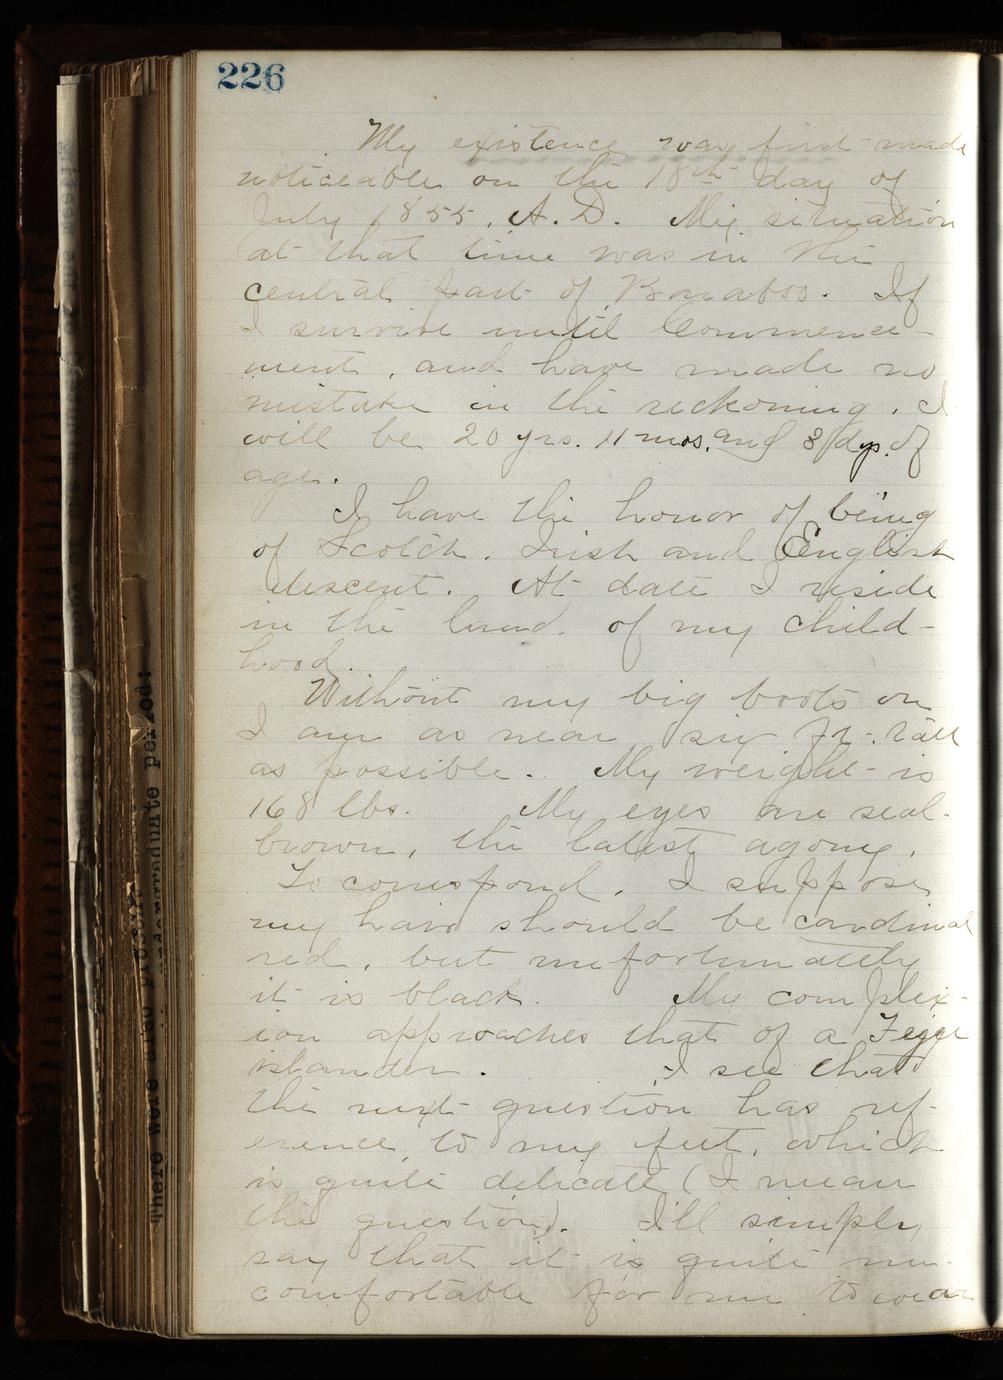 226
My existence was first made
noticeable on the 18th day of
July 1855, A.D. My situation
at that time was in the
central part of Baraboo. If
I survive until Commence-
ment, and have made no
mistake in the reckoning, I
will be 20 yrs. 11 mos. and 3 dys. of
age.
I have the honor of being
of Scotch, Irish and English
descent. At date I reside
in the land of my child-
hood.
Without my big boots on
I am as near six ft. tall
as possible. My weight is
168 lbs. My eyes are seal-
brown, the latest agony.
To correspond, I suppose
my hair should be cardinal
red, but unfortunately
it is black. My complex-
ion approaches that of a Feger
islander. I see that
the next question has ref-
erence to my feet, which
is quite delicate (I mean
the question). I'll simply
say that it is quite un-
comfortable for me to wear
There were also present
undergraduate period: